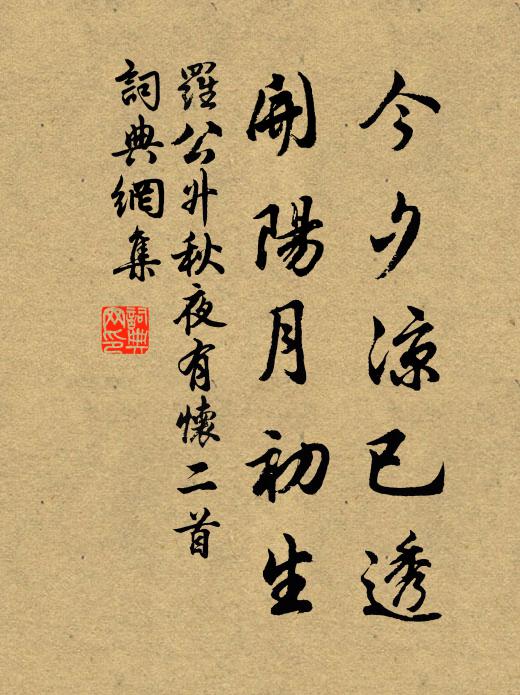 今夕涼已透
開陽月初生
羅公升秋夜有懷二首
詞典網集
詞典网印